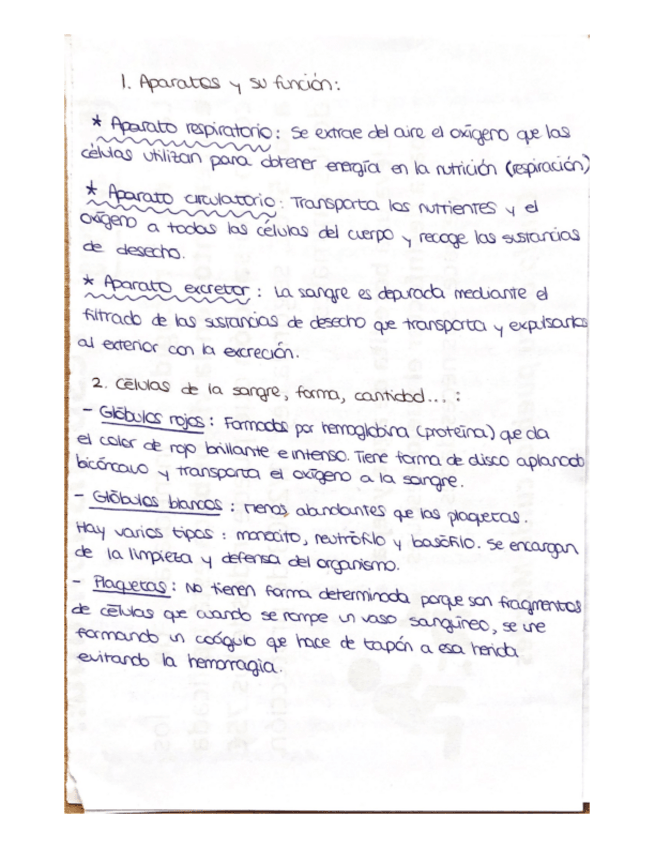 1. Aparatos y su función:
* Aparato respiratorio: Se extrae del aire el oxígeno que las
células utilizan para obtener energía en la nutrición (respiración)
* Aparato circulatorio: Transporta los nutrientes y el
oxígeno a todas las células del cuerpo y recoge las sustancias
de desecho.
* Aparato excretor: La sangre es depurada mediante el
filtrado de las sustancias de desecho que transporta y expulsarlas
al exterior con la excreción.
2. Células de la sangre, forma, cantidad... :
- Glóbulos rojos: Formados por hemoglobina (proteína) que da
el color de rojo brillante e intenso. Tiene forma de disco aplanado
bicóncavo y transporta el oxígeno a la sangre.
- Glóbulos blancos: menos abundantes que las plaquetas.
Hay varios tipos: monocito, neutrófilo y basófilo. Se encargan
de la limpieza y defensa del organismo.
- Plaquetas: No tienen forma determinada porque son fragmentos
de células que cuando se rompe un vaso sanguíneo, se une
formando un coágulo que hace de tapón a esa herida
evitando la hemorragia.